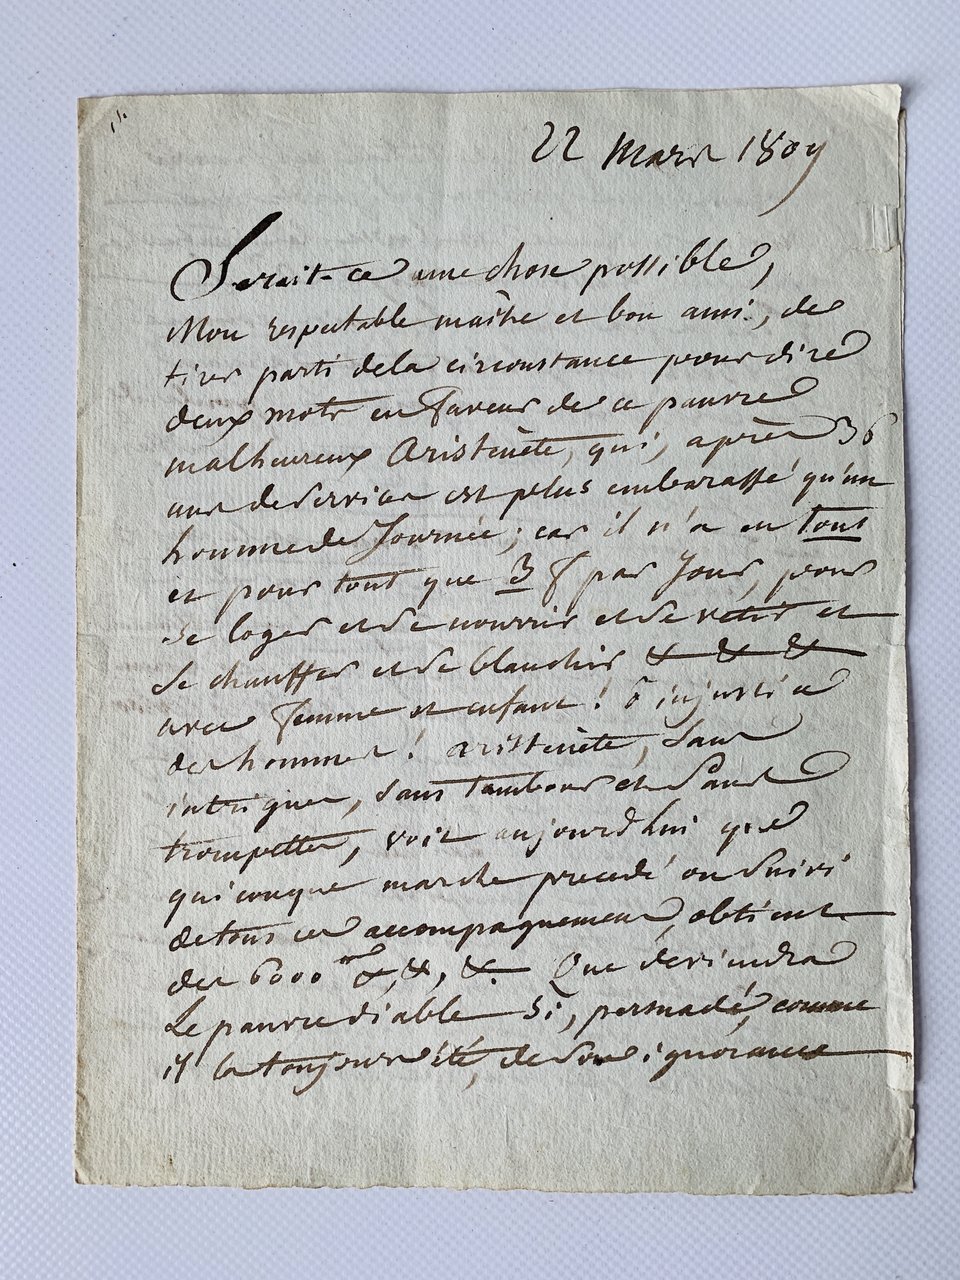 22 Mars 1809
Serait-ce une chose possible,
Mon respectable maitre et bon ami, de
tirer parti dela circonstance pour dire
deux mots en faveur de ce pauvre
malheureux Aristénète, qui, après 36
ans de Service est plus embarassé qu'un
homme de Journée; car il n'a en tout
et pour tout que 3 f par Jour, pour
se loger et se nourrir et se vetir et
se chauffer et se blanchir & & &
avec femme et enfant! ô injustice
des hommes! aristénète, sans
intrigue, sans tambour et sans
trompette, voit aujourdhui que
quiconque marche precedé ou suivi
de tous ces accompagnemens, obtient
des 6000 &, &, &. Que deviendra
Le pauvre diable si, persuadé, comme
il la toujours été, de son ignorance